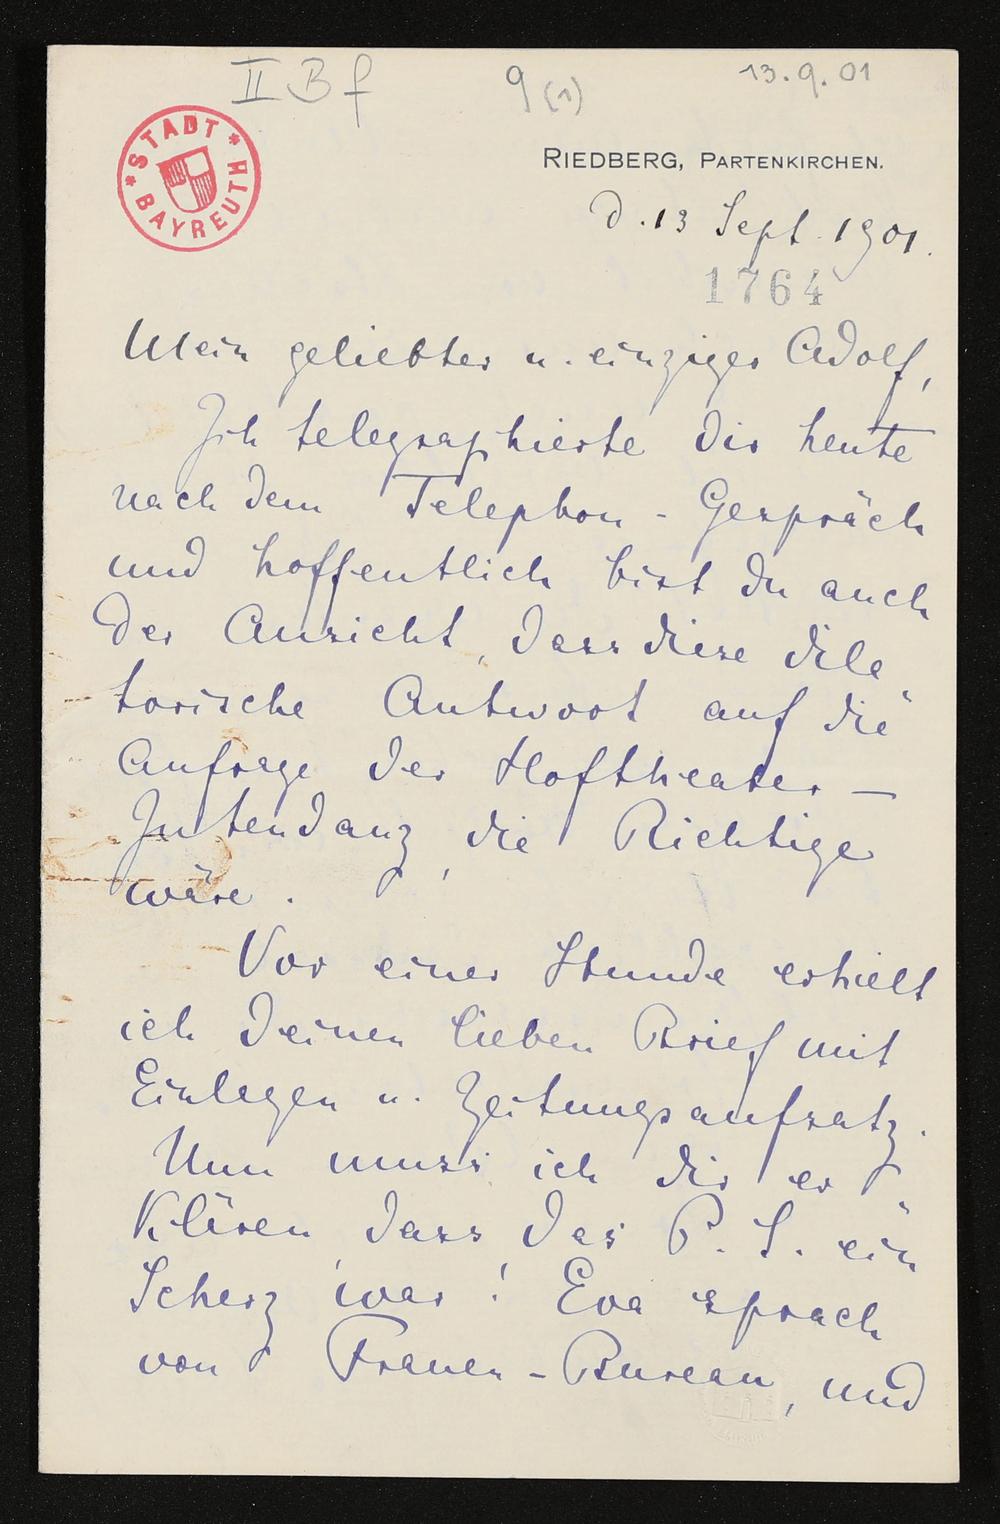 II B f 9 (1) 13.9.01
* STADT *
BAYREUTH
RIEDBERG, PARTENKIRCHEN.
d. 13 Sept. 1901.
1764
Mein geliebter u. einziger Adolf,
Ich telegraphierte dir heute
nach dem Telephon-Gespräch
und hoffentlich bist du auch
der Ansicht, dass diese dila"
torische Antwort auf die
Anfrage der Hoftheater-
Intendanz, die Richtige
wäre.
Vor einer Stunde erhielt
ich deinen lieben Brief mit
Einlagen u. Zeitungsaufsatz.
Nun muss ich dir er"
klären, dass das P. S. ein
Scherz war! Eva sprach
von Frauen-Bureau, und